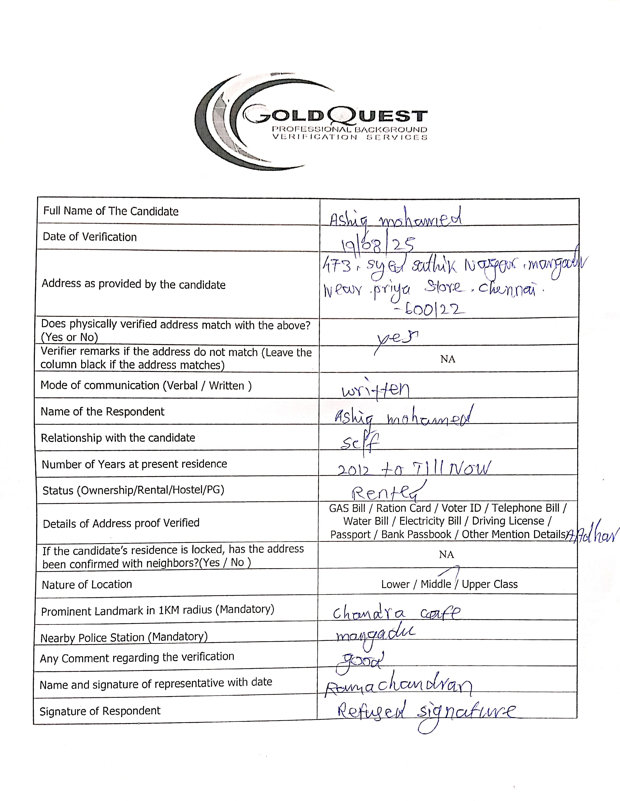 GOLDQUEST
PROFESSIONAL BACKGROUND
VERIFICATION SERVICES
Full Name of The Candidate Ashiq mohamed
Date of Verification 19/08/25
Address as provided by the candidate 473, syed sathik Nagar, mangadu
Near priya store, chennai.
-600122
Does physically verified address match with the above?
(Yes or No) yes
Verifier remarks if the address do not match (Leave the
column black if the address matches) NA
Mode of communication (Verbal / Written ) written
Name of the Respondent Ashiq mohamed
Relationship with the candidate self
Number of Years at present residence 2012 to Till Now
Status (Ownership/Rental/Hostel/PG) Rently
Details of Address proof Verified GAS Bill / Ration Card / Voter ID / Telephone Bill /
Water Bill / Electricity Bill / Driving License /
Passport / Bank Passbook / Other Mention Details AAdhar
If the candidate's residence is locked, has the address
been confirmed with neighbors?(Yes / No ) NA
Nature of Location Lower / Middle / Upper Class
Prominent Landmark in 1KM radius (Mandatory) Chandra cafe
Nearby Police Station (Mandatory) mangadu
Any Comment regarding the verification good
Name and signature of representative with date Ramachandran
Signature of Respondent Refused signature